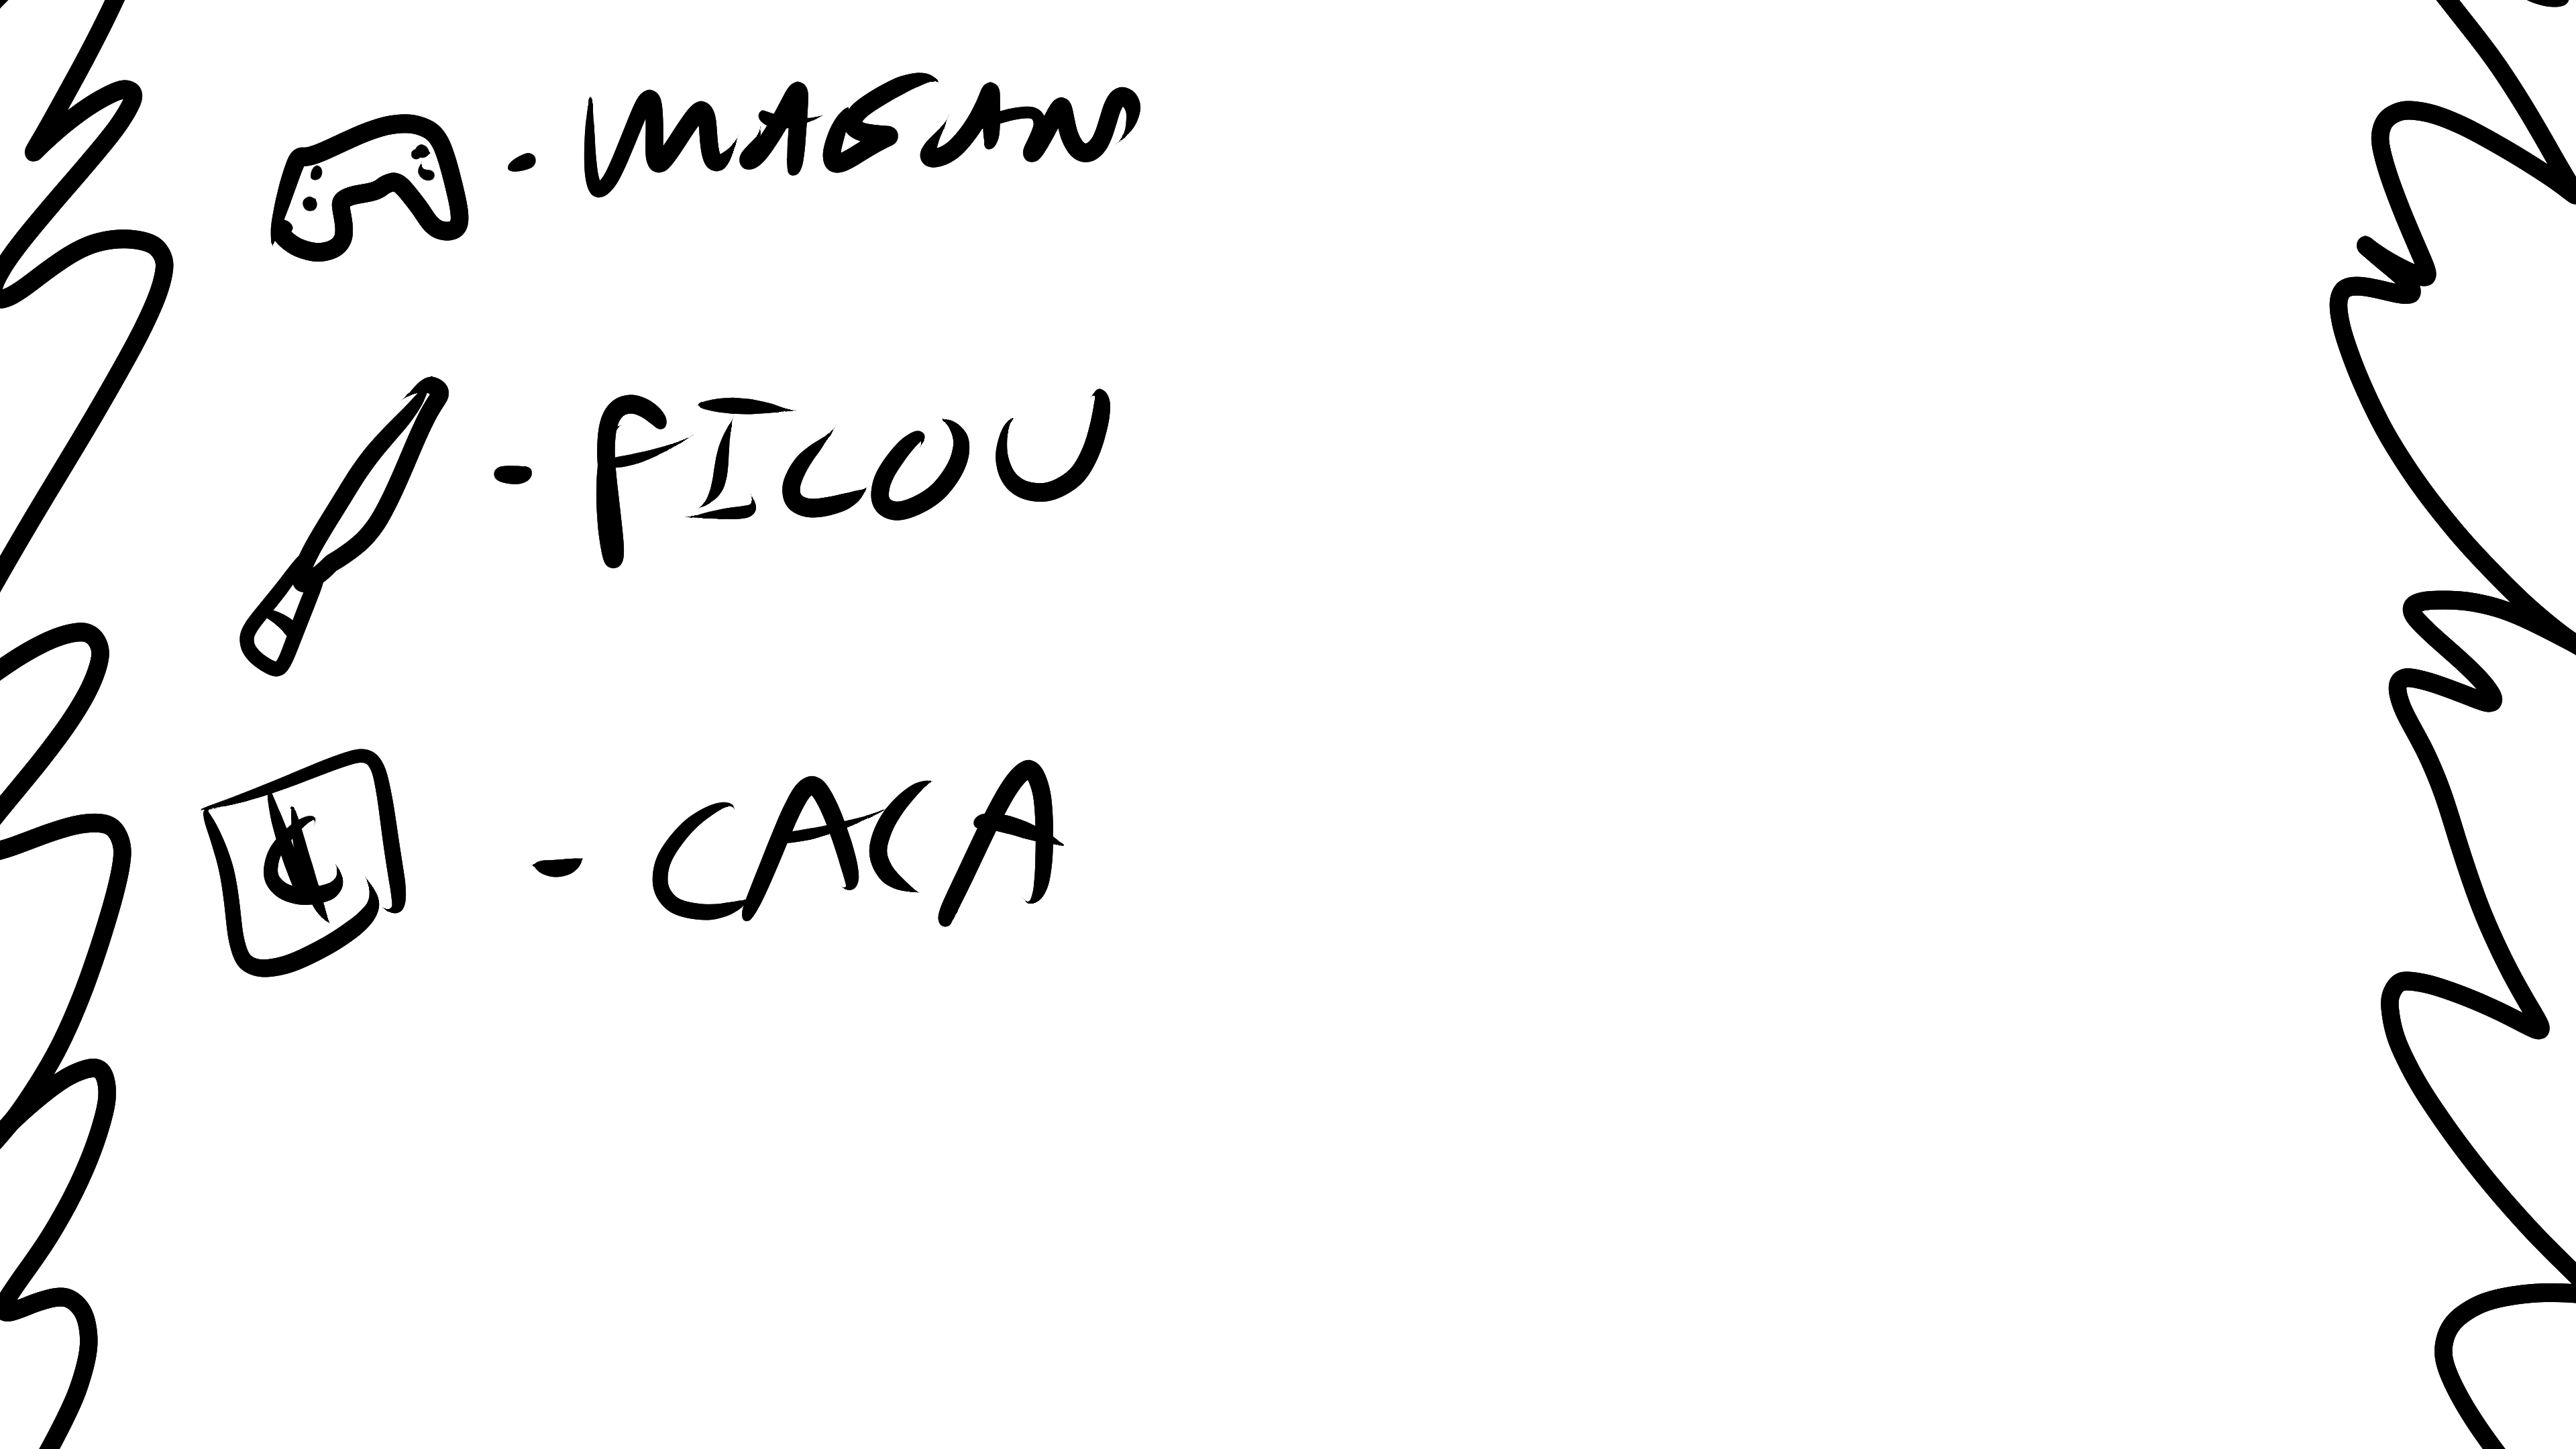 - MAGAN
- FICOU
₵ - CACA